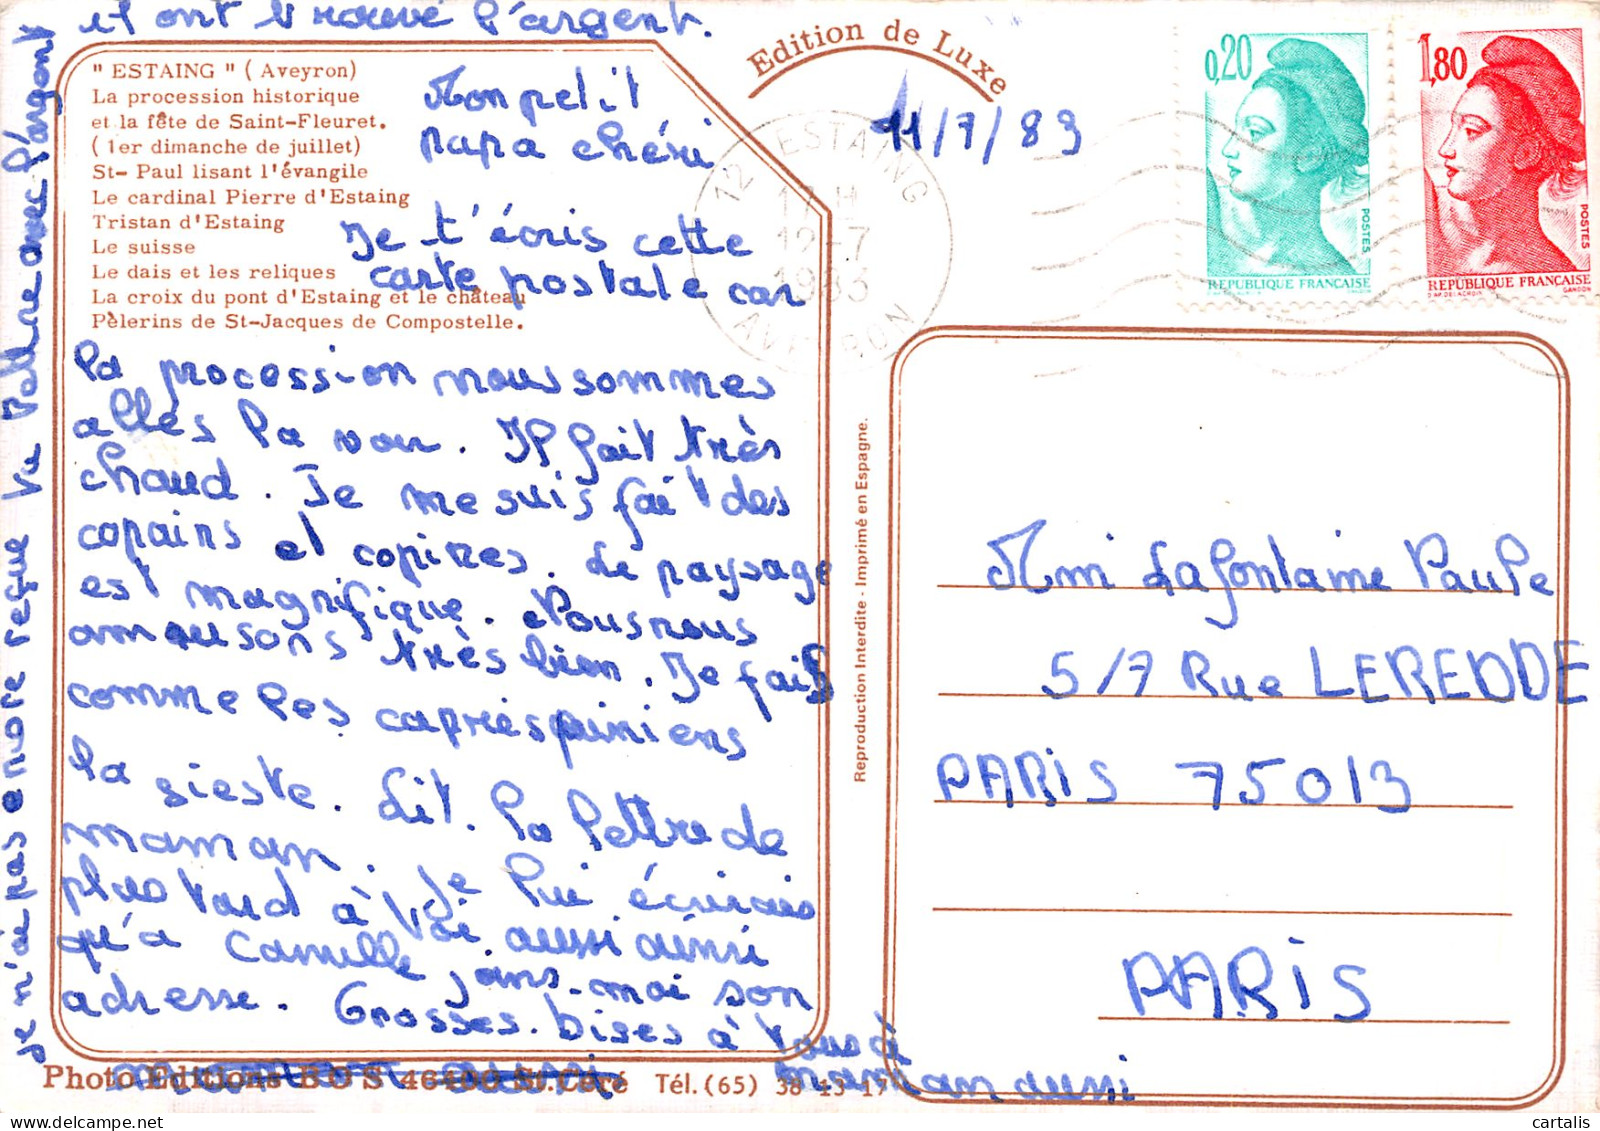 il ont trouvé l'argent.
je n'ai pas encore reçue ta lettre avec l'argent
" ESTAING " ( Aveyron)
La procession historique
et la fête de Saint-Fleuret.
( 1er dimanche de juillet)
St- Paul lisant l'évangile
Le cardinal Pierre d'Estaing
Tristan d'Estaing
Le suisse
Le dais et les reliques
La croix du pont d'Estaing et le château
Pèlerins de St-Jacques de Compostelle.
Edition de Luxe
11/7/83
Mon petit
papa chéri
Je t'écris cette
carte postale car
la procession nous sommes
allés la voir. Il fait très
chaud. Je me suis fait des
copains et copines. Le paysage
est magnifique. Nous nous
amusons très bien. Je fais
comme les
la sieste. Lit la lettre de
maman. Je lui écrirais
plus tard à toi aussi ainsi
qu'a Camille
adresse. Grosses bises à tous à
maman aussi
12 ESTAING
17 H
12-7
1983
AVEYRON
0,20
POSTES
REPUBLIQUE FRANCAISE
D'AP. DELACROIX GANDON
1,80
POSTES
REPUBLIQUE FRANCAISE
D'AP. DELACROIX GANDON
Reproduction Interdite - Imprimé en Espagne.
Lafontaine Paule
5/7 Rue LEREDDE
PARIS 75013
PARIS
Photo Editions BOS 46400 St.Céré Tél. (65) 38-13-17
cartalis